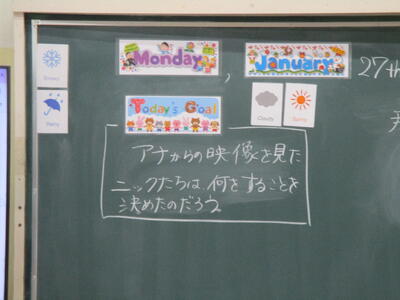 Snowy
Monday, January 27th
Rainy
Today's Goal
Cloudy
Sunny
アナからの映像を見た
ニックたちは、何をすることを
決めたのだろう